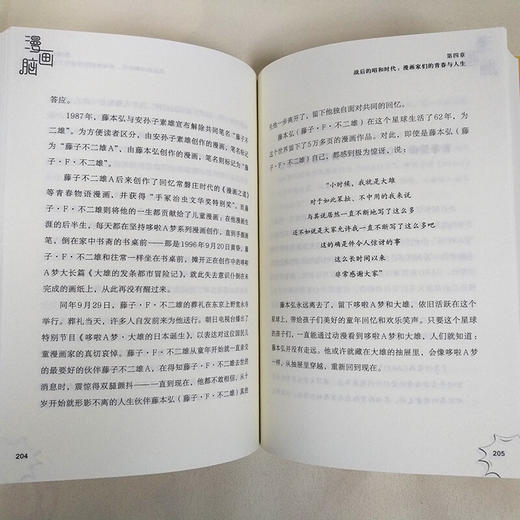 漫画
脑
答应。
1987年，藤本弘与安孙子素雄宣布解除共同笔名“藤子不
二雄”。为方便读者区分，由安孙子素雄创作的漫画，笔名标
记为“藤子不二雄A”，由藤本弘创作的漫画，笔名则标记为“藤
子・F・不二雄”。
藤子不二雄A后来创作了回忆常磐庄时代的《漫画之道》
等青春物语漫画，并获得“手冢治虫文化奖特别奖”，而藤
子・F・不二雄则将他的一生都贡献给了儿童漫画：在他漫画生
涯的后半生，每天都在坚持哆啦A梦系列漫画创作，直到手握画
笔，倒在家中书斋的书桌前——那是1996年9月20日黄昏，藤
子・F・不二雄和往常一样坐在书桌前，摊开正在创作中的哆啦
A梦大长篇《大雄的发条都市冒险记》，就此失去意识仆倒在未
完成的画纸上，从此再没有醒过来。
同年9月29日，藤子・F・不二雄的葬礼在东京上野宽永寺
举行。葬礼当天，许多人自发前来为他送行。朝日电视台播出了
特别节目《哆啦A梦・大雄的日本诞生》，以表达对这位国民儿
童漫画家的真切哀悼。藤子・F・不二雄从童年开始就一直亲交
的最要好的伙伴藤子不二雄A，在得知藤子・F・不二雄去世的
消息时，震惊得双腿颤抖——一直到现在，他都不敢相信，从十
岁开始就形影不离的人生伙伴藤本弘（藤子・F・不二雄）真的
204
第四章
战后的昭和时代，漫画家们的青春与人生
先他一步离开了，留下他独自面对共同的回忆。
藤本弘（藤子・F・不二雄）在这个星球生活了62年，为
这个世界留下了5万多页的漫画作品。对此，即使是藤本弘（藤
子・F・不二雄）自己，都感到极为惊讶，说：
“小时候，我就是大雄
对于如此笨拙、不中用的我来说
与其说居然一直不断地写了这么多
还不如说是大家允许我一直不断地写了这么多吧
这真的是件令人惊讶的事
这么长时间以来
非常感谢大家”
藤本弘永远离去了，留下哆啦A梦和大雄，依旧活跃在这个
星球上，带给孩子们美好的童年回忆和欢乐笑声。只要这个星球
的孩子们，一直能通过动漫看到哆啦A梦和大雄，人们就知道：
藤本弘并没有走远。他或许就藏在大雄的抽屉里，会像哆啦A梦
一样，从抽屉里穿越，重新回到现在。
205